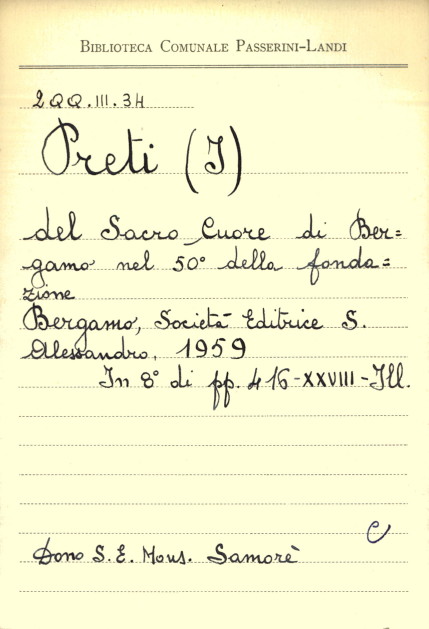 BIBLIOTECA COMUNALE PASSERINI-LANDI
2QQ.III.34
Preti (I)
del Sacro Cuore di Ber=
gamo nel 50° della fonda=
zione
Bergamo, Società Editrice S.
Alessandro, 1959
In 8° di pp. 416-XXVIII-Ill.
C
Dono S. E. Mons. Samorè